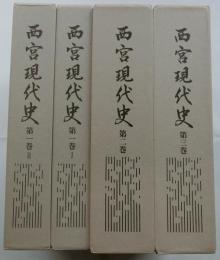 西宮現代史
第一巻
西宮現代史
第一巻
西宮現代史
第二巻
西宮現代史
第三巻